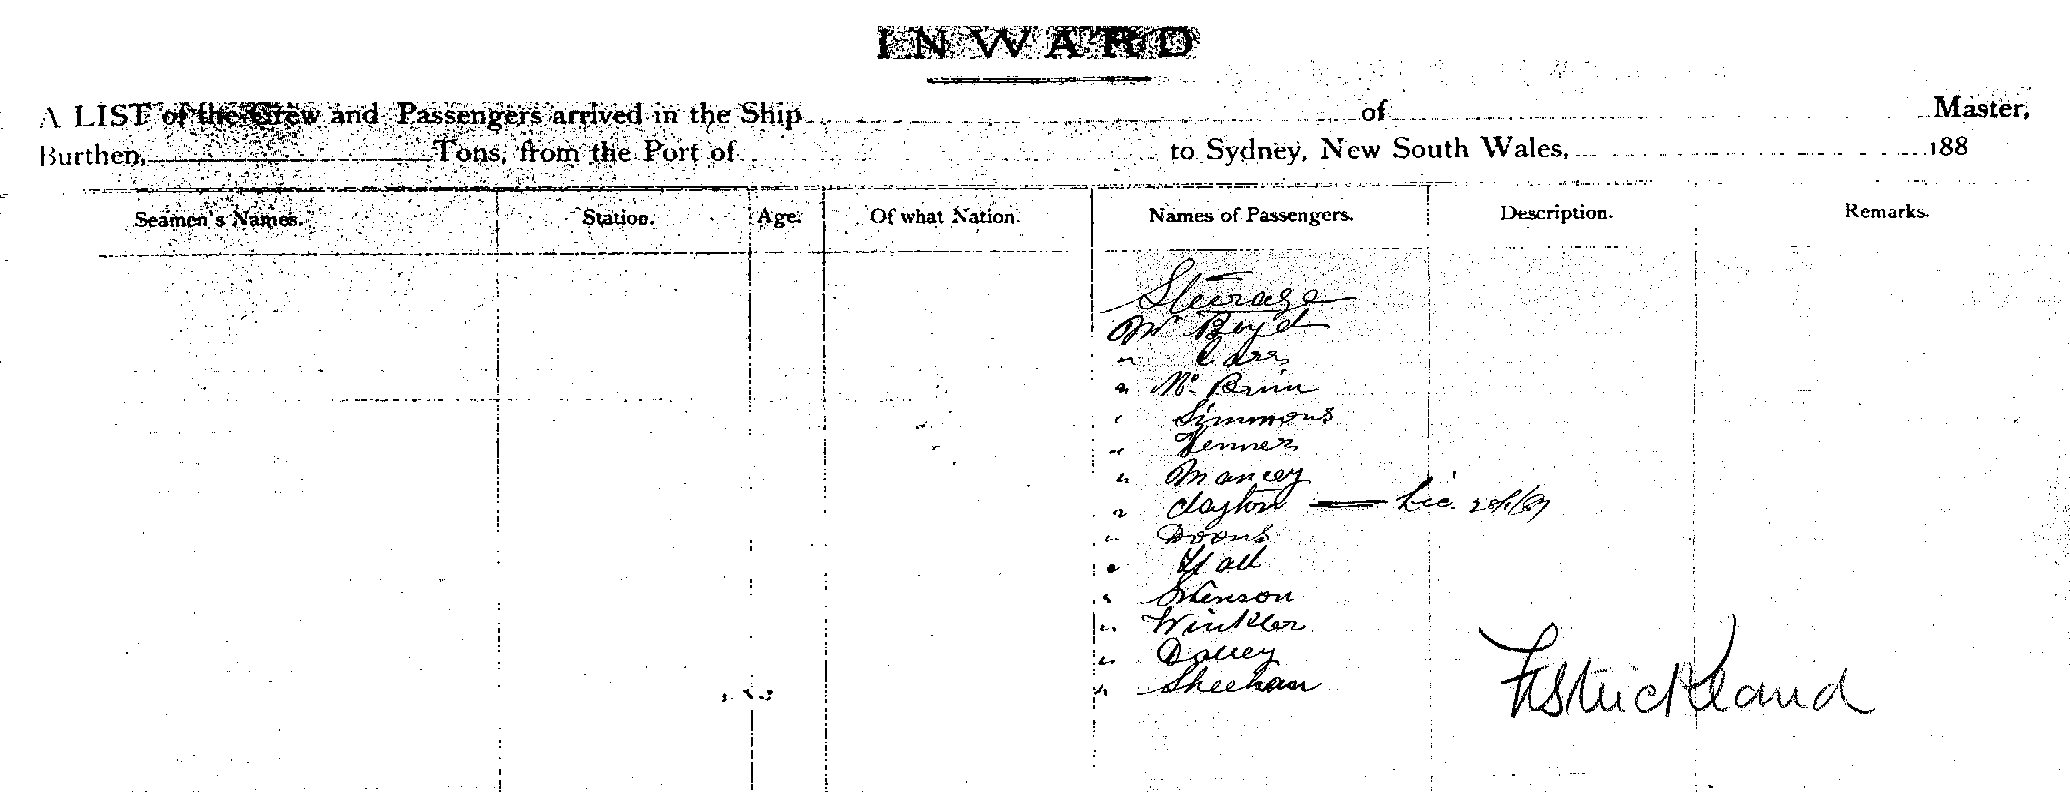 INWARD
A LIST of the Crew and Passengers arrived in the Ship of Master,
Burthen, Tons, from the Port of to Sydney, New South Wales, 188
Seamen's Names. Station. Age. Of what Nation. Names of Passengers. Description. Remarks.
Steerage
Mr Boyd
" Carr
" Mc
" Simmons
" Venner
" Mancey
" Clayton — Lic.
"
" Hall
" Stenson
" Winkler
" Davey
" Sheehan
FStrickland